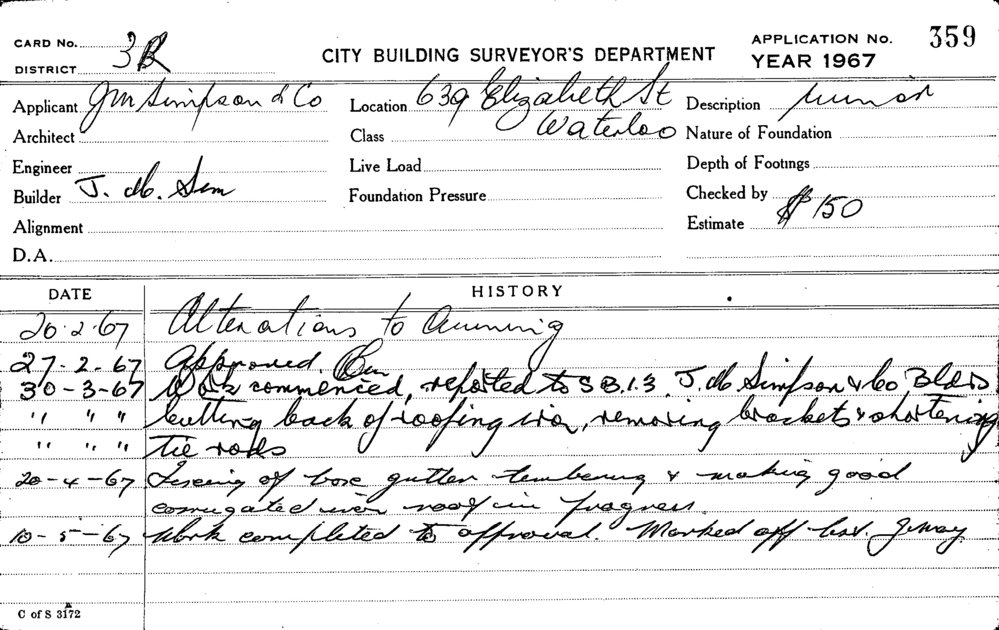 CARD No. 3B
DISTRICT
CITY BUILDING SURVEYOR'S DEPARTMENT
APPLICATION No. 359
YEAR 1967
Applicant J M Simpson & Co
Location 639 Elizabeth St
Waterloo
Description Minor
Architect
Class
Nature of Foundation
Engineer
Live Load
Depth of Footings
Builder J. M. Sim
Foundation Pressure
Checked by
Alignment
Estimate $150
D.A.
DATE
HISTORY
20.2.67 Alterations to Awning
27-2-67 Approved.
30-3-67 Work commenced, reported to S B.I.3. J. M Simpson & Co Bldrs
" " " cutting back of roofing iron, removing brackets & shortening
" " " tie rods
20-4-67 Fixing of box gutter & making good
corrugated iron roof in progress.
10-5-67 Work completed to approval. Marked off
C of S 3172